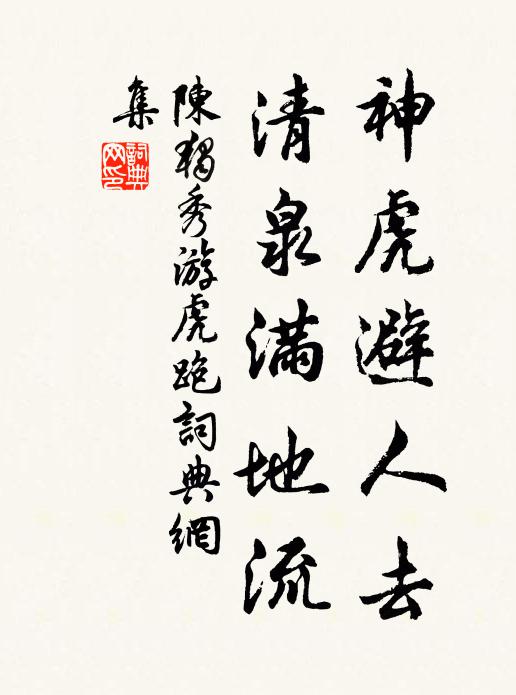 神虎避人去
清泉滿地流
陳獨秀游虎跑詞典網
集
詞典
网印